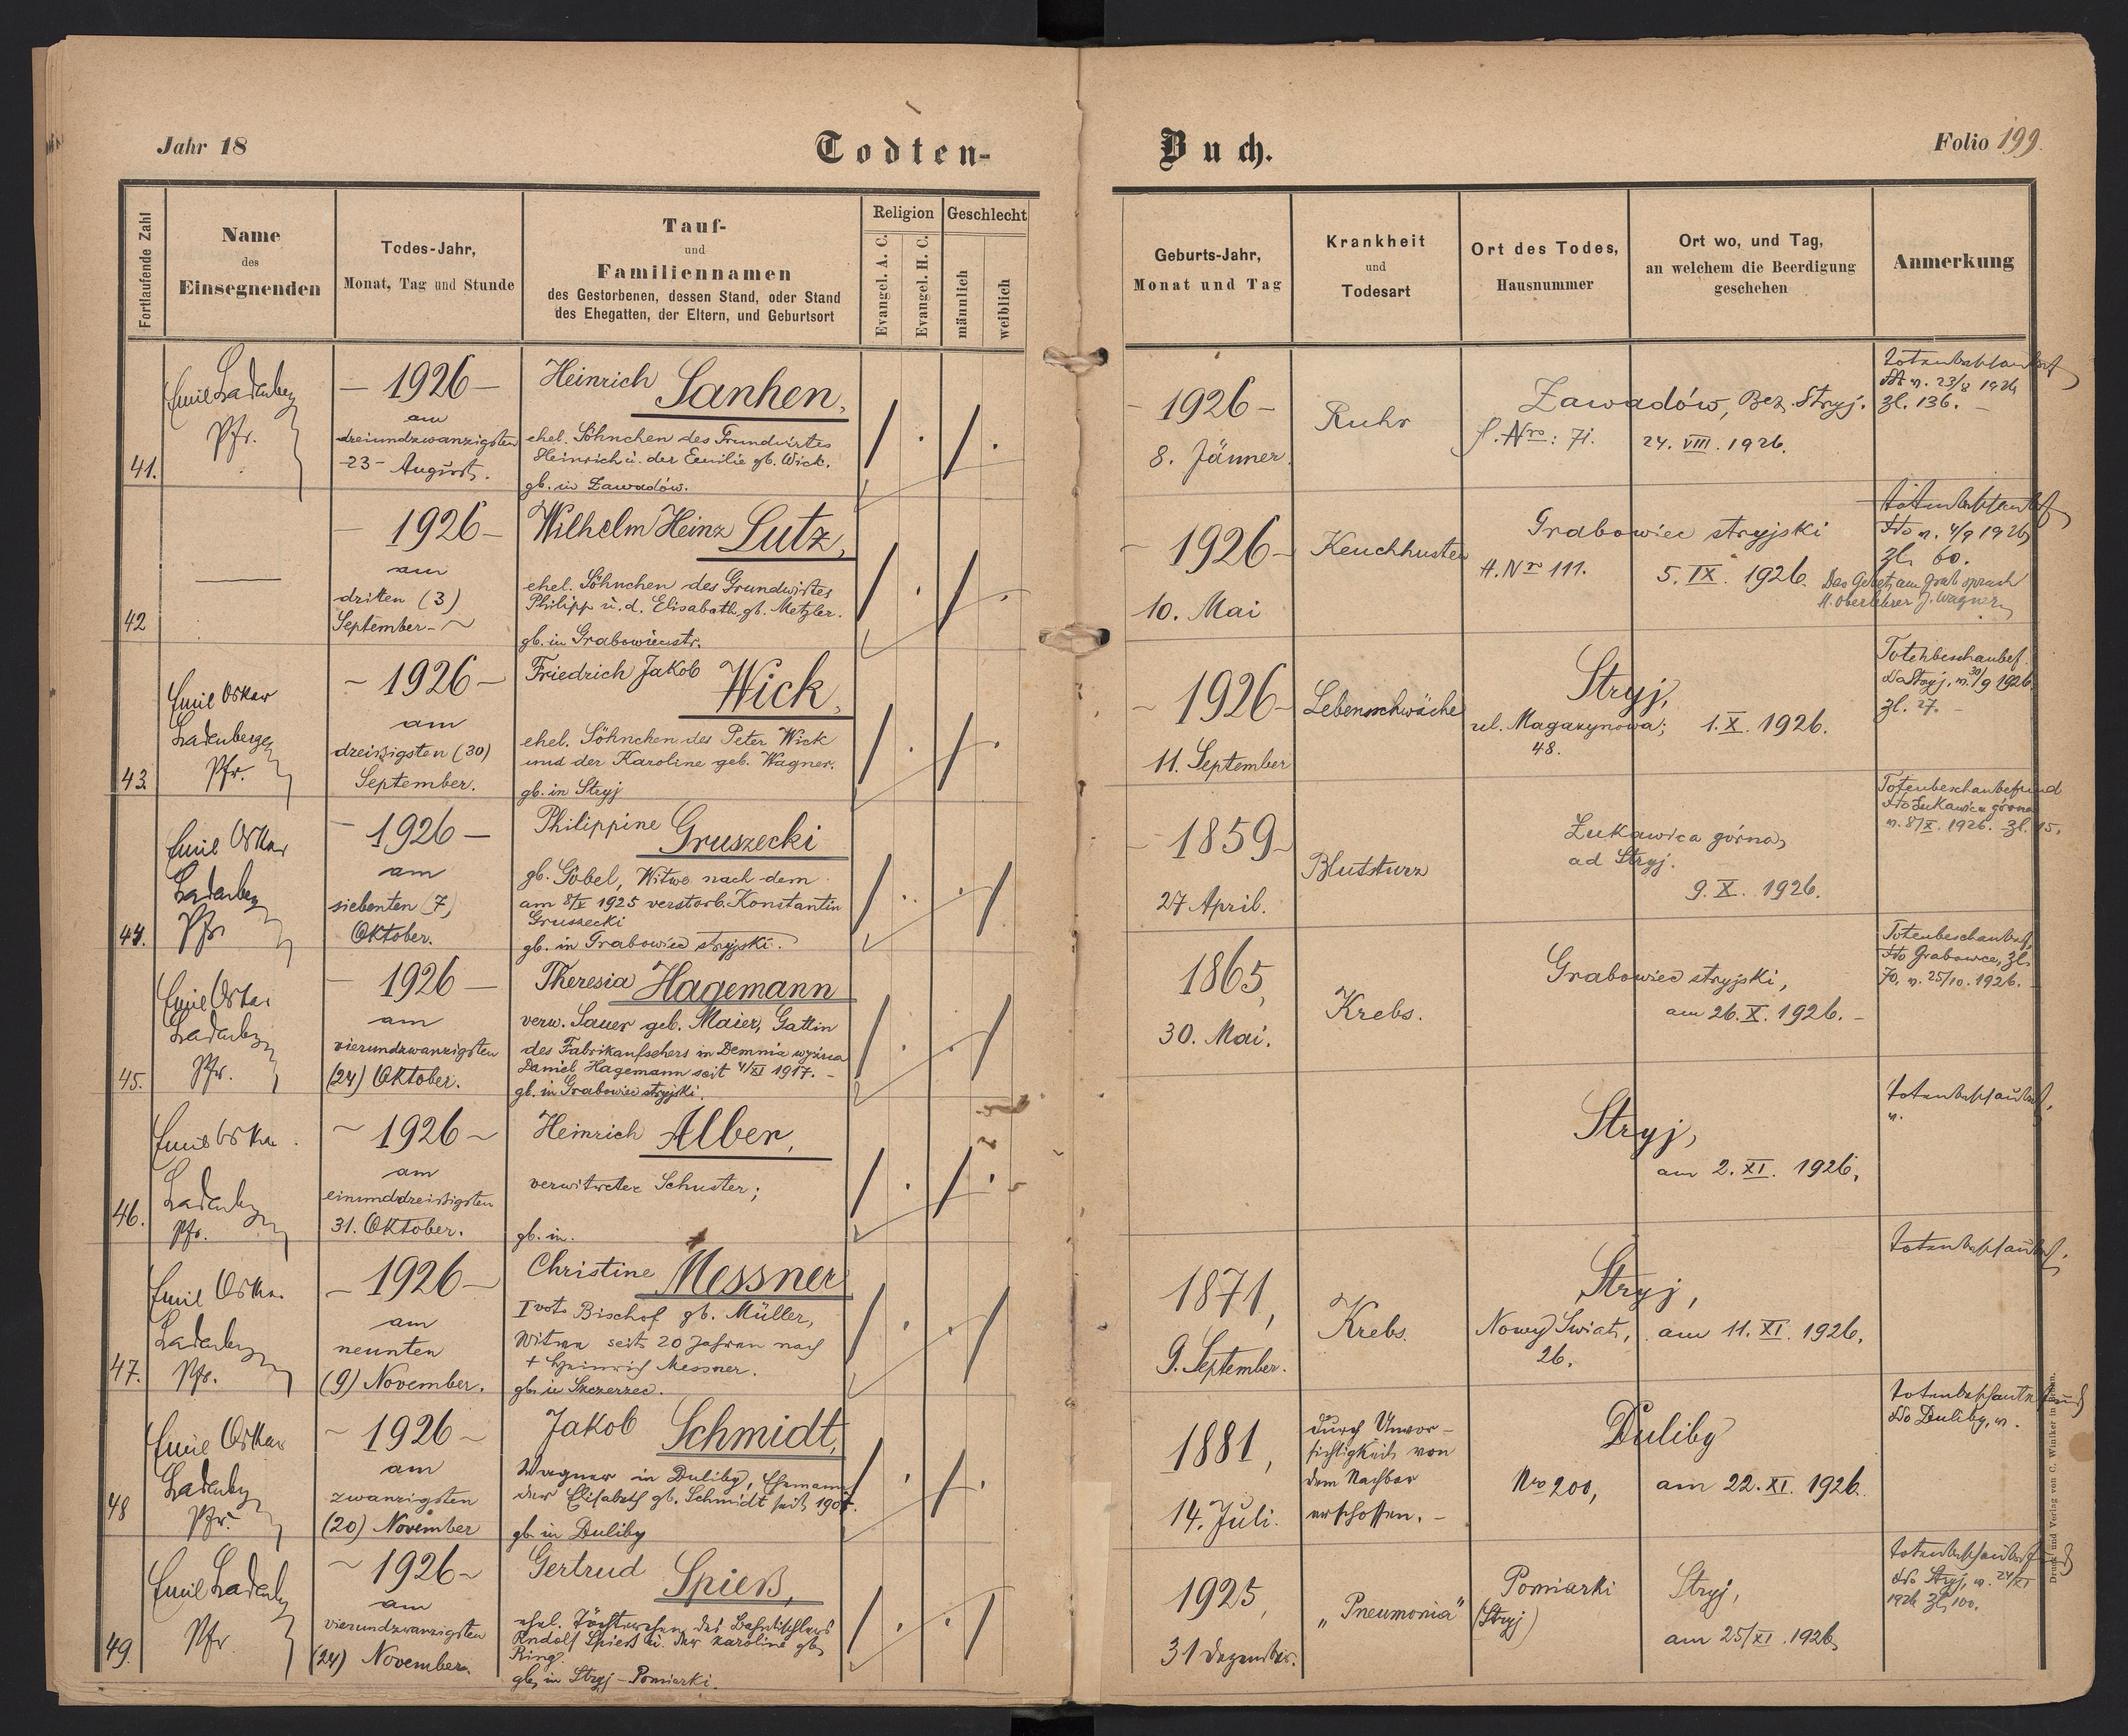 Jahr 18
Todten-
Buch.
Folio 199.
Fortlaufende Zahl
Name
des
Einsegnenden
Todes-Jahr,
Monat, Tag und Stunde
Tauf-
und
Familiennamen
des Gestorbenen, dessen Stand, oder Stand
des Ehegatten, der Eltern, und Geburtsort
Religion
Evangel. A. C.
Evangel. H. C.
Geschlecht
männlich
weiblich
Geburts-Jahr,
Monat und Tag
Krankheit
und
Todesart
Ort des Todes,
Hausnummer
Ort wo, und Tag,
an welchem die Beerdigung
geschehen
Anmerkung
41.
Emil Ladenberger
Pfr.
– 1926 –
am
dreiundzwanzigsten
-23- August.
Heinrich Sanhen,
ehel. Söhnchen des Grundwirtes
Heinrich u. der Emilie gb. Wick.
gb. in Zawadów.
– 1926 –
8. Jänner.
Ruhr
Zawadów, Bez. Stryj.
H. Nro: 71.
24. VIII. 1926.
Totenbeschaubef
dto v. 23/8 1926
Zl. 136. –
42
– 1926 –
am
dritten (3)
September –
Wilhelm Heinz Lutz,
ehel. Söhnchen des Grundwirtes
Philipp u. d. Elisabeth gb. Metzler.
gb. in Grabowiecstr.
– 1926 –
10. Mai
Keuchhusten
Grabowiec stryjski
H. Nro 111.
5. IX. 1926.
Totenbeschaubef
dto v. 4/9 1926
Zl. 60.
Das Gebet am Grab sprach
H. Oberlehrer J. Wagner
43.
Emil Oskar
Ladenberger
Pfr.
– 1926 –
am
dreißigsten (30)
September.
Friedrich Jakob Wick,
ehel. Söhnchen des Peter Wick
und der Karoline geb. Wagner.
gb. in Stryj
– 1926 –
11. September
Lebensschwäche
Stryj,
ul. Magazynowa;
48.
1. X. 1926.
Totenbeschaubef.
dto Stryj, v. 30/9 1926.
Zl. 27. –
44.
Emil Oskar
Ladenberger
Pfr
– 1926 –
am
siebenten (7)
Oktober.
Philippine Gruszecki
gb. Göbel, Witwe nach dem
am 8/V 1925 verstorb. Konstantin
Gruszecki
gb. in Grabowiec stryjski.
– 1859 –
27 April.
Blutsturz
Łukawica górna,
ad Stryj.
9. X. 1926.
Totenbeschaubefund
dto Łukawica górna
v. 8/X. 1926. Zl. 15.
45.
Emil Oskar
Ladenberger
Pfr.
– 1926 –
am
vierundzwanzigsten
(24) Oktober.
Theresia Hagemann
verw. Sauer geb. Maier, Gattin
des Fabrikaufsehers in Demnia wyżna
Daniel Hagemann seit 4/XI 1917. –
gb. in Grabowiec stryjski.
1865,
30. Mai.
Krebs.
Grabowiec stryjski,
am 26. X. 1926. –
Totenbeschaubef,
dto Grabowce, Zl.
70, v. 25/10. 1926. –
46.
Emil Oskar
Ladenberger
Pfr.
– 1926 –
am
einunddreißigsten
31. Oktober.
Heinrich Alber,
verwitweter Schuster;
gb. in.
Stryj,
am 2. XI. 1926.
Totenbeschaubef.
v.
47.
Emil Oskar
Ladenberger
Pfr.
– 1926 –
am
neunten
(9) November.
Christine Messner
I voto Bischof gb. Müller,
Witwe seit 20 Jahren nach
+ Heinrich Messner.
gb. in Szczerzec.
1871,
9. September.
Krebs.
Stryj,
Nowy Swiat,
26.
am 11. XI. 1926.
Totenbeschaubef.
48
Emil Oskar
Ladenberger
Pfr.
– 1926 –
am
zwanzigsten
(20) November
Jakob Schmidt,
Wagner in Duliby, Ehemann
der Elisabeth gb. Schmidt seit
gb. in Duliby
1881,
14. Juli.
durch Unvor-
sichtigkeit von
dem Nachbar
erschossen. –
Duliby
Nro 200,
am 22. XI. 1926.
Totenbeschaubefund
dto Duliby, v.
49.
Emil Ladenberger
Pfr
– 1926 –
am
vierundzwanzigsten
(24) November.
Gertrud Spieß,
ehel. Töchterchen des Bahntischlers
Rudolf Spieß u. der Karoline gb.
Ring.
gb. in Stryj – Pomiarki.
1925,
31 Dezember.
„Pneumonia"
Pomiarki
(Stryj)
Stryj,
am 25/XI. 1926.
Totenbeschaubefund
dto Stryj, v. 24/XI
1926 Zl. 100.
Druck und Verlag von C. Winiker in Brünn.